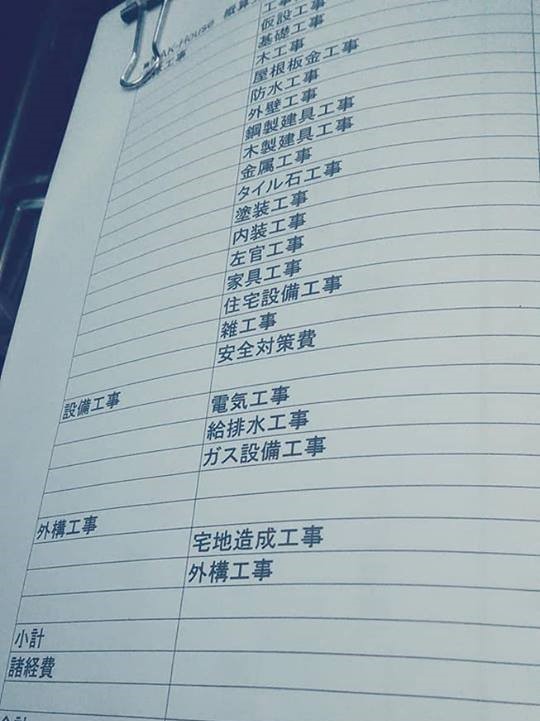 AK-House 概算
工事
仮設工事
基礎工事
木工事
屋根板金工事
防水工事
外壁工事
鋼製建具工事
木製建具工事
金属工事
タイル石工事
塗装工事
内装工事
左官工事
家具工事
住宅設備工事
雑工事
安全対策費
設備工事 電気工事
給排水工事
ガス設備工事
外構工事
宅地造成工事
外構工事
小計
諸経費